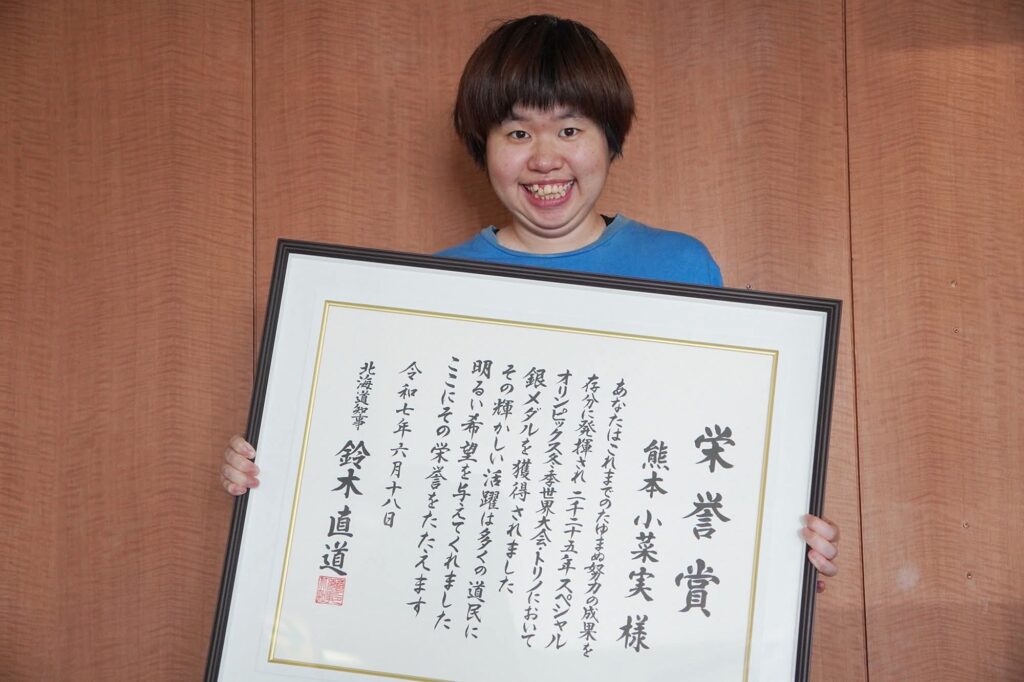 栄誉賞
熊本小菜実様
あなたはこれまでのたゆまぬ努力の成果を
存分に発揮され二千二十五年スペシャル
オリンピックス冬季世界大会・トリノにおいて
銀メダルを獲得されました
その輝かしい活躍は多くの道民に
明るい希望を与えてくれました
ここにその栄誉をたたえます
令和七年六月十八日
北海道知事 鈴木直道